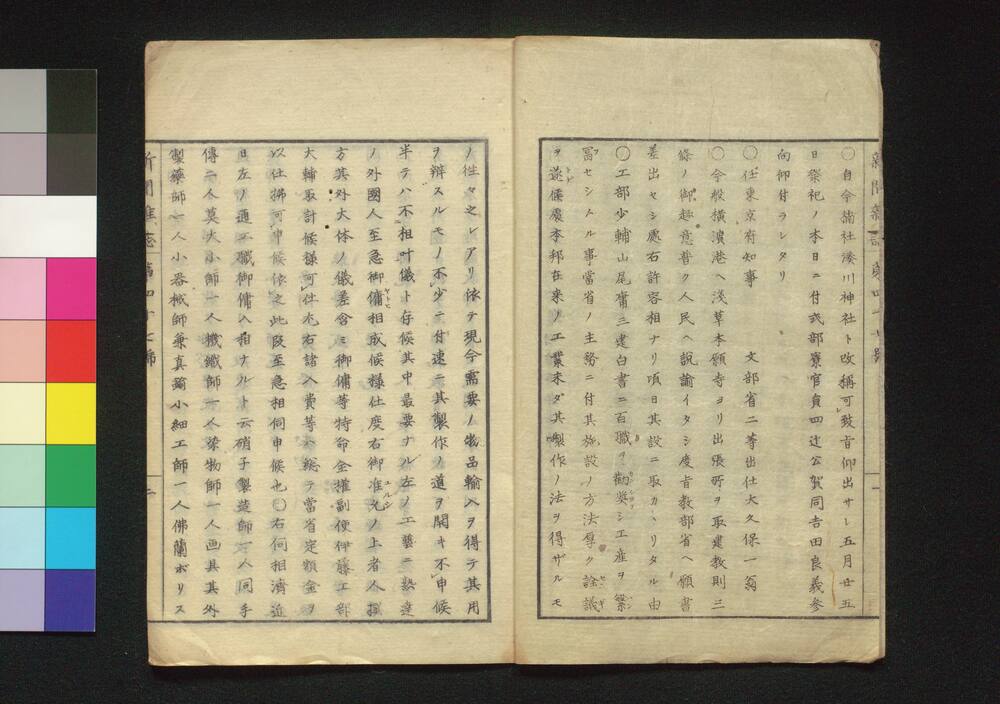 〇自今楠社湊川神社ト改稱可致旨仰出サレ五月廿五
日祭祀ノ本日ニ付式部寮官員四辻公賀同吉田良義参
向仰付ラレタリ
〇任東京府知事　文部省二等出仕大久保一翁
〇今般横濱港ヘ淺草本願寺ヨリ出張所ヲ取建教則三
條ノ御趣意普ク人民ヘ説諭イタシ度旨教部省ヘ願書
差出セシ處右許容相ナリ頃日其設ニ取カヽリタル由
〇工部少輔山尾庸三建白書ニ百職ヲ勸奨シ工産ヲ繁
冨セシムル事當省ノ主務ニ付其施設ノ方法厚ク詮議
ヲ遂候處本邦在来ノ工業未ダ其製作ノ法ヲ得ザルモ
ノ徃々之レアリ依テ現今需要ノ物品輸入ヲ得テ其用
ヲ辨スルモノ不少ニ付速ニ其製作ノ道ヲ開キ不申候
半テハ不相叶儀ト存候其中最要ナル左ノ工藝ニ熟達
ノ外國人至急御傭相成候様仕度右御准允ノ上者人撰
方其外大体ノ儀差含ミ御傭等特命全權副使伊藤工部
大輔取計候様可仕尤右諸入費等ハ総テ當省定額金ヲ
以仕拂可申候依之此段至急相伺申候也〇右伺相濟近
日左ノ通工職御傭入相ナルト云硝子製造師一人同手
傳二人莫大小師一人織師一人染物師一人画具其外
製藥師一人小器械師兼真鍮小細工師一人佛蘭ポリス